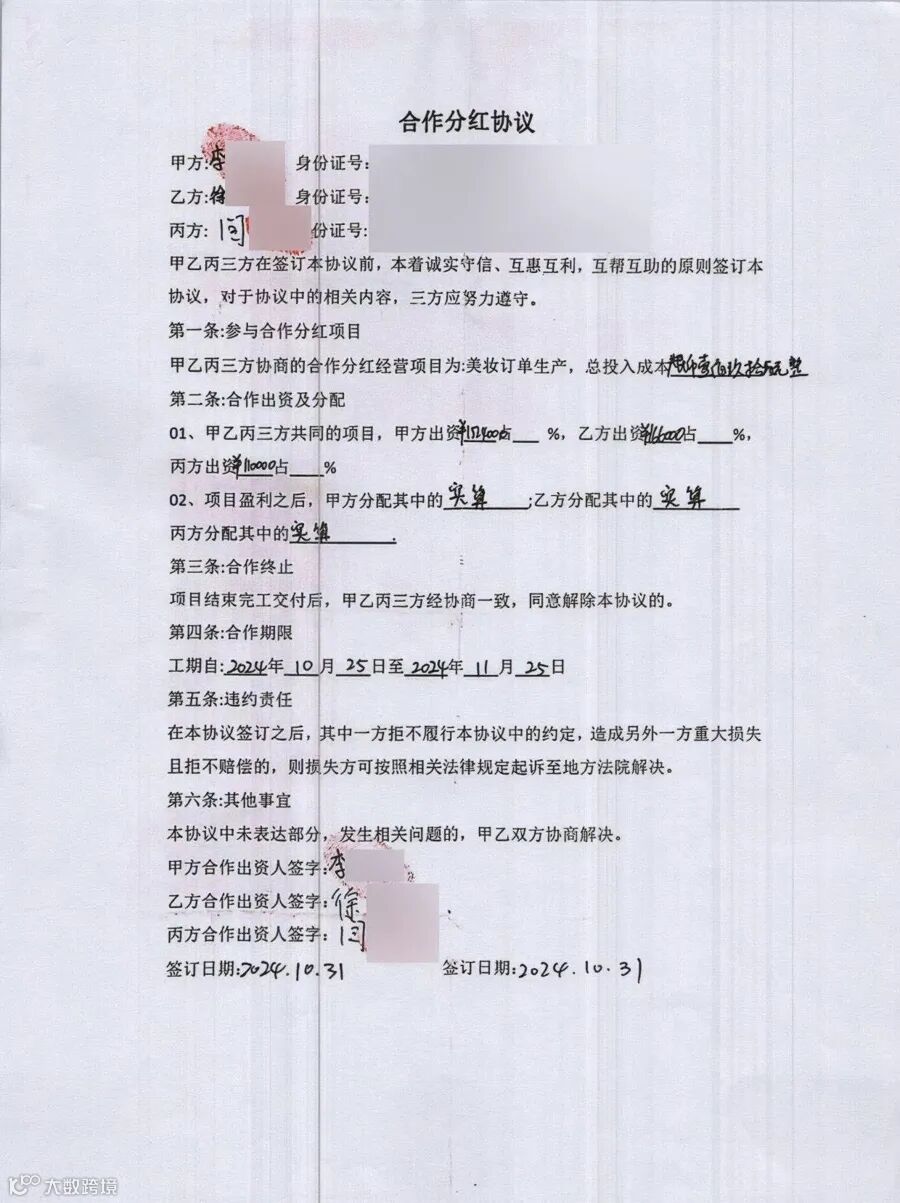 合作分红协议
甲方:李 身份证号:
乙方:徐 身份证号:
丙方: 闫 份证号:
甲乙丙三方在签订本协议前，本着诚实守信、互惠互利，互帮互助的原则签订本
协议，对于协议中的相关内容，三方应努力遵守。
第一条:参与合作分红项目
甲乙丙三方协商的合作分红经营项目为:美妆订单生产，总投入成本 仟壹佰玖拾 元整
第二条:合作出资及分配
01、甲乙丙三方共同的项目，甲方出资¥152400占___ %，乙方出资¥166000占____%，
丙方出资¥110000占____%
02、项目盈利之后，甲方分配其中的 实算 ;乙方分配其中的 实算
丙方分配其中的 实算 .
第三条:合作终止
项目结束完工交付后，甲乙丙三方经协商一致，同意解除本协议的。
第四条:合作期限
工期自:2024年 10 月 25 日至 2024年 11 月 25 日
第五条:违约责任
在本协议签订之后，其中一方拒不履行本协议中的约定，造成另外一方重大损失
且拒不赔偿的，则损失方可按照相关法律规定起诉至地方法院解决。
第六条:其他事宜
本协议中未表达部分，发生相关问题的，甲乙双方协商解决。
甲方合作出资人签字:李
乙方合作出资人签字:徐
丙方合作出资人签字: 闫
签订日期:2024.10.31 签订日期:2024.10.31
大数跨境